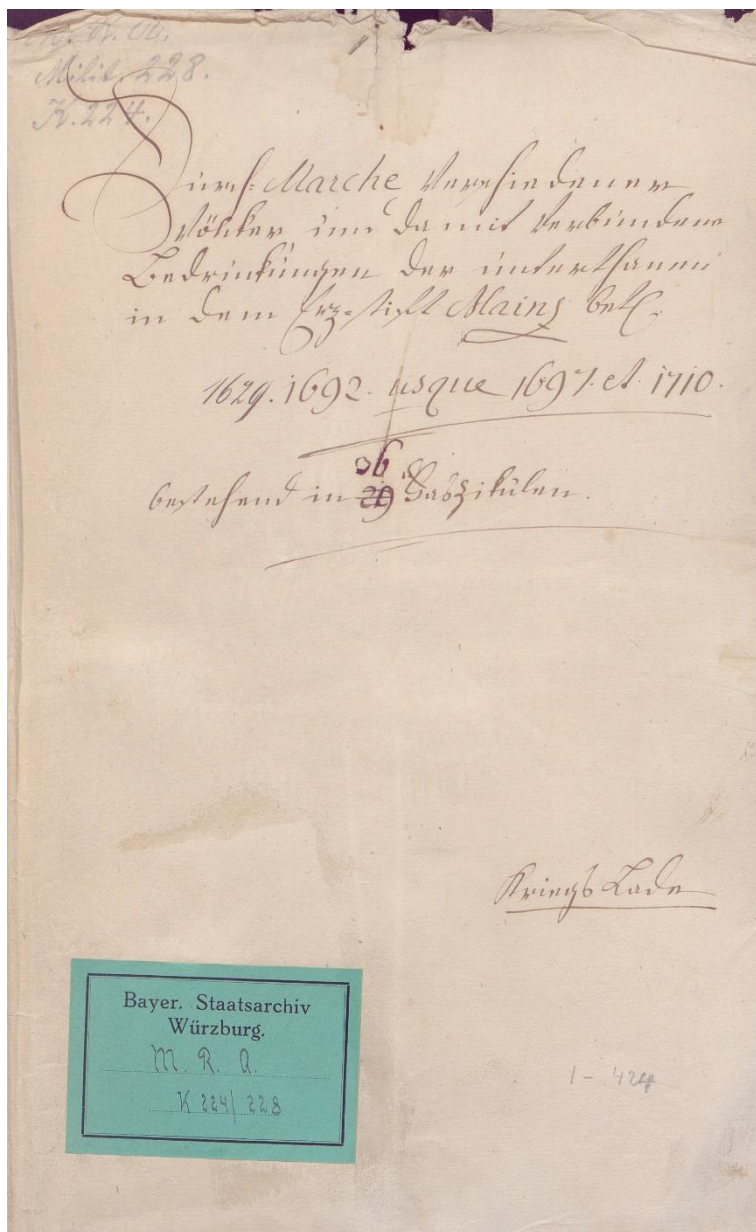 M. R. A.
Milit. 228.
K. 224.
Durch-Marche Verschiedener
Völcker und damit Verbundene
Bedrückungen der unterthanen
in dem Erz-stifft Mainz betr.
1629. 1692. usque 1697. et. 1710.
36
bestehend in 29 Faszikulen.
Kriegs Lade
Bayer. Staatsarchiv
Würzburg.
M. R. A.
K 224/228
1 - 424